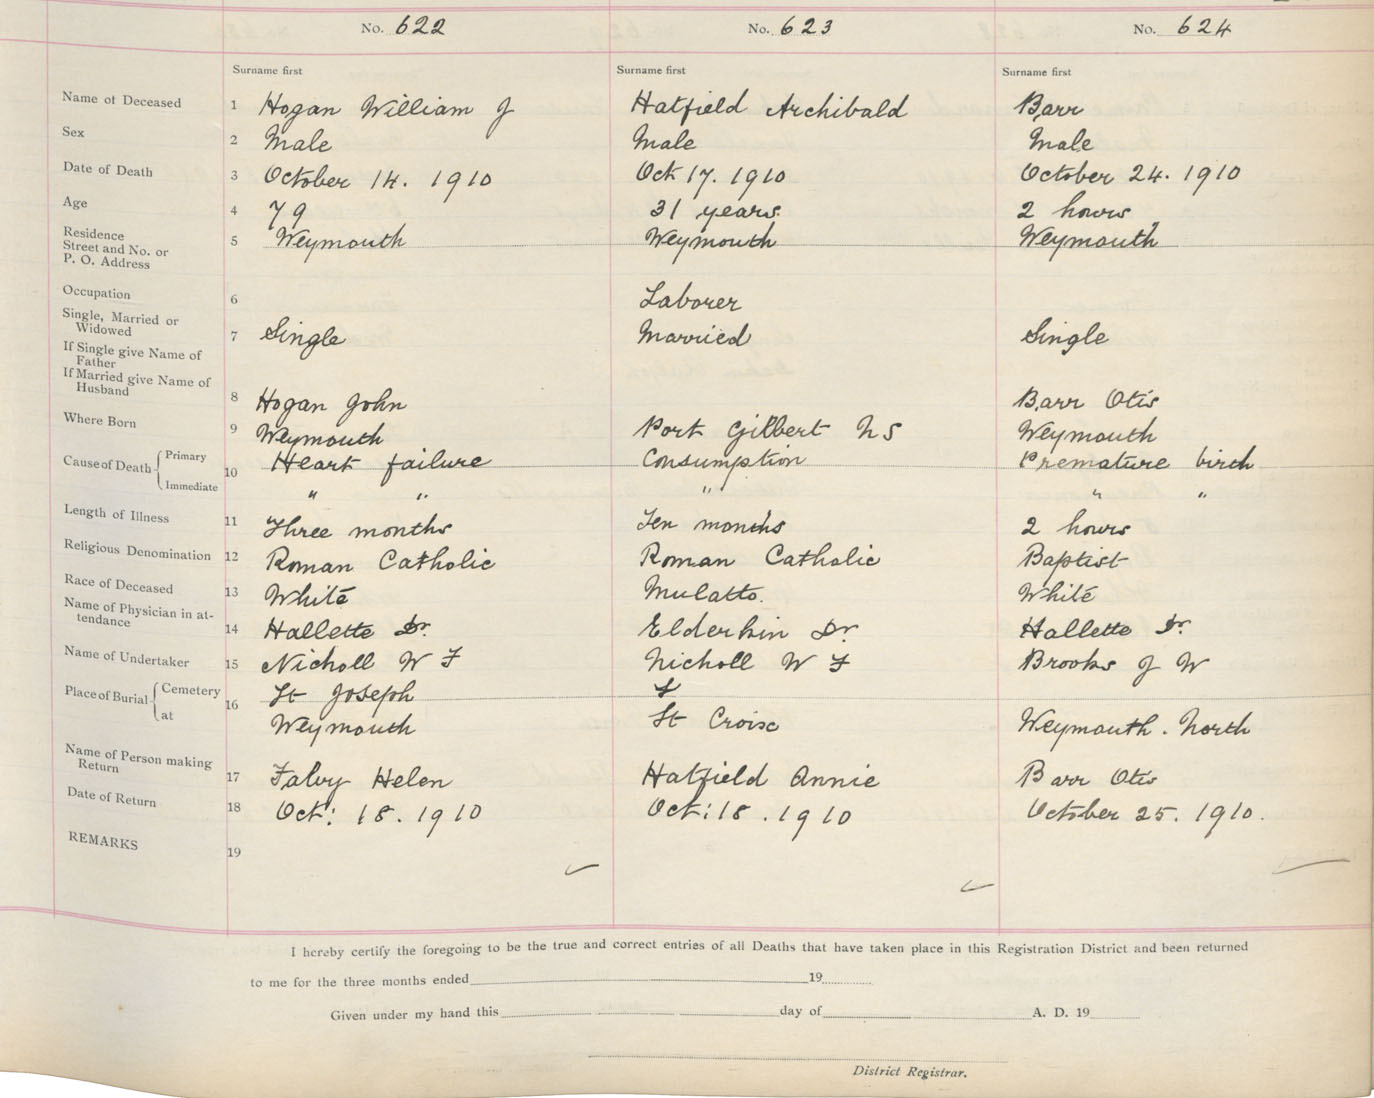 No. 622 No. 623 No. 624
Surname first Surname first Surname first
Name of Deceased 1 Hogan William J Hatfield Archibald Barr
Sex 2 Male Male Male
Date of Death 3 October 14. 1910 Oct 17. 1910 October 24. 1910
Age 4 79 31 years. 2 hours
Residence
Street and No. or 5 Weymouth Weymouth Weymouth
P. O. Address
Occupation 6 Laborer
Single, Married or
Widowed 7 Single Married Single
If Single give Name of
Father
If Married give Name of
Husband 8 Hogan John Barr Otis
Where Born 9 Weymouth Port Gilbert N S Weymouth
Cause of Death Primary 10 Heart failure Consumption Premature birth
Immediate " " " " "
Length of Illness 11 Three months Ten months 2 hours
Religious Denomination 12 Roman Catholic Roman Catholic Baptist
Race of Deceased 13 White Mulatto. White
Name of Physician in at-
tendance 14 Hallette Dr. Elderkin Dr Hallette Dr.
Name of Undertaker 15 Nicholl W F Nicholl W F Brooks J W
Place of Burial Cemetery 16 St Joseph
at Weymouth St Croix Weymouth. North
Name of Person making
Return 17 Falvy Helen Hatfield Annie Barr Otis
Date of Return 18 Oct: 18. 1910 Oct: 18. 1910 October 25. 1910.
REMARKS 19
I hereby certify the foregoing to be the true and correct entries of all Deaths that have taken place in this Registration District and been returned
to me for the three months ended 19
Given under my hand this day of A. D. 19
District Registrar.